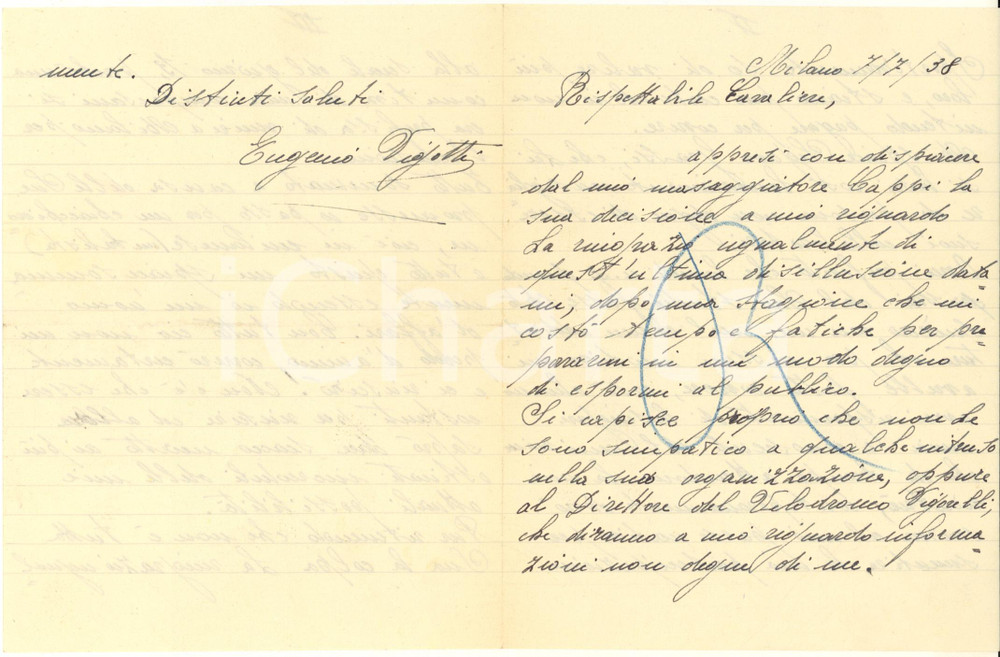 Milano 7/7/38
Rispettabile Cavaliere,
appresi con dispiacere
dal mio masaggiatore Cappi la
sua decisione a mio riguardo
La ringrazio ugualmente di
quest'ultima disillusione data
mi, dopo una stagione che mi
costò tempo e fatiche per pre
pararmi in un modo degno
di espormi al publico.
Si capisce proprio che non le
sono simpatico a qualche intruso
nella sua organizzazione, oppure
al Direttore del Velodromo Vigorelli,
che diranno a mio riguardo informa
zioni non degne di me.
mente.
Distinti saluti
Eugenio
iCharta